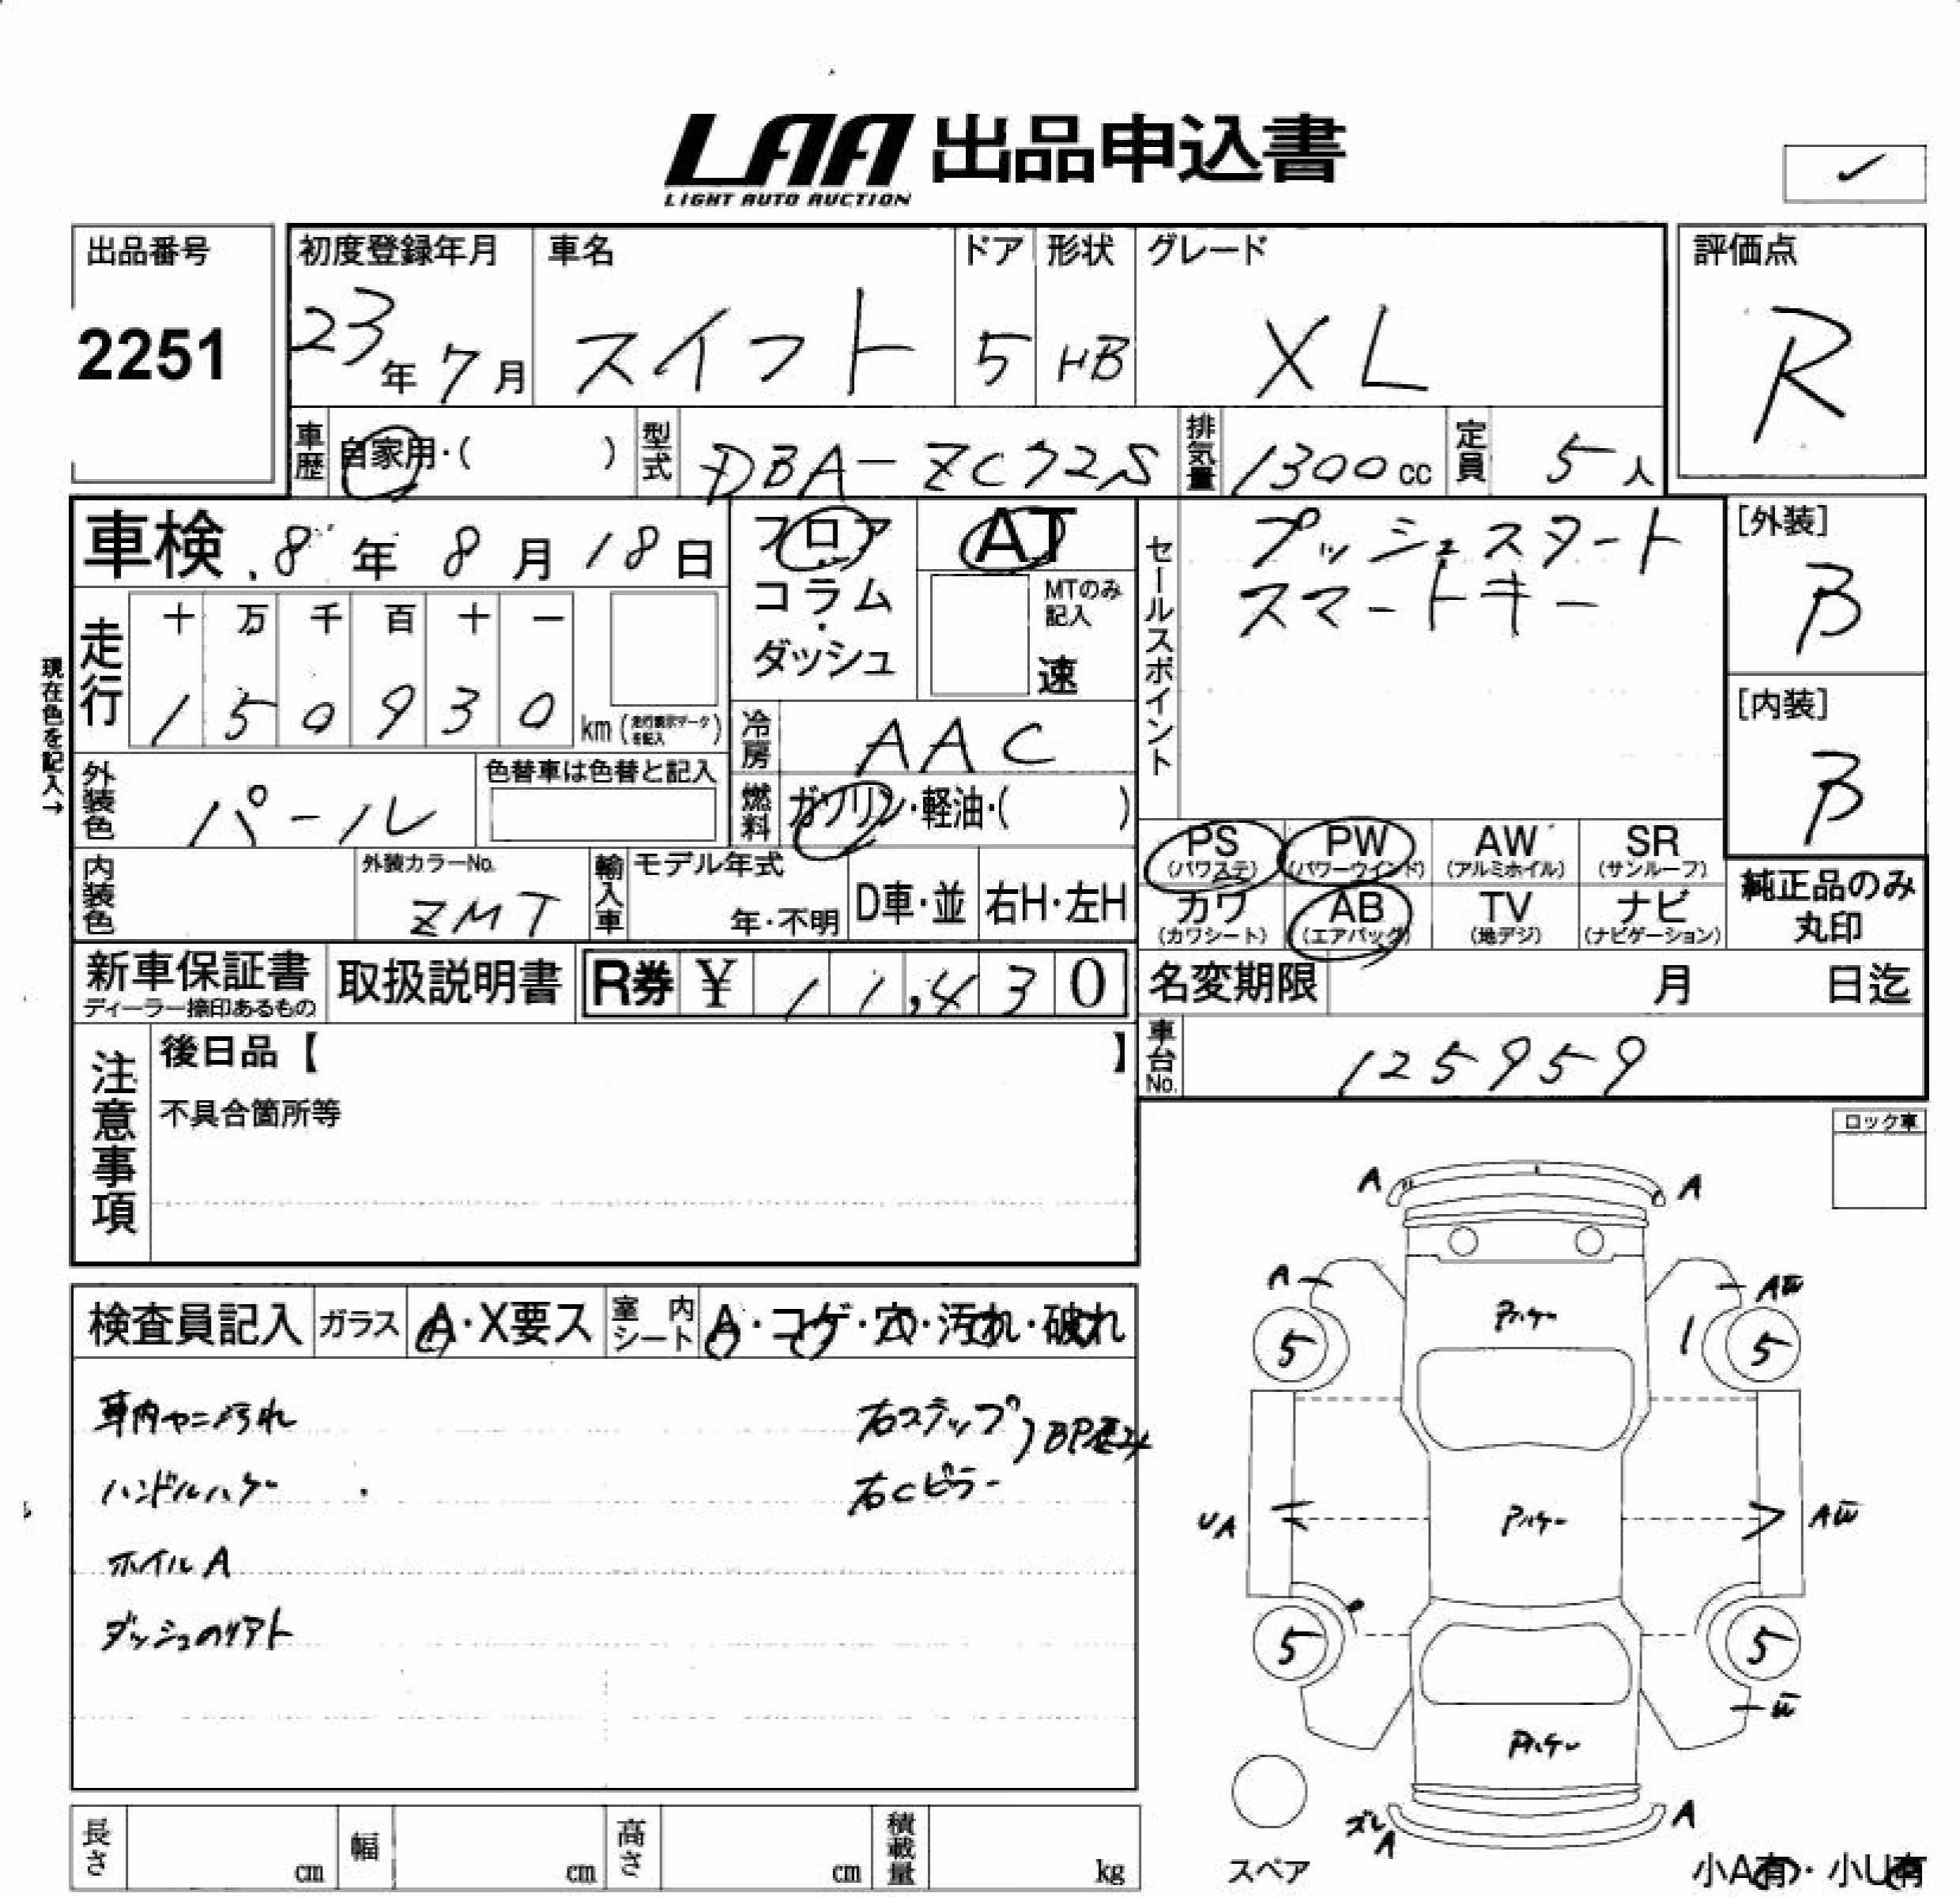 LAA 出品申込書
LIGHT AUTO AUCTION
出品番号
2251
初度登録年月
23年7月
車名
スイフト
ドア
5
形状
HB
グレード
XL
評価点
R
車歴
自家用・( )
型式
DBA-ZC72S
排気量
1300cc
定員
5人
車検 8年8月18日
フロア
コラム
・
ダッシュ
AT
MTのみ
記入
速
セールスポイント
プッシュスタート
スマートキー
[外装]
B
[内装]
B
現在色を記入→
走行
十 万 千 百 十 一
1 5 0 9 3 0 km (走行表示データを記入)
冷房
AAC
外装色
パール
色替車は色替と記入
燃料
ガソリン・軽油・( )
PS
(パワステ)
PW
(パワーウインド)
AW
(アルミホイル)
SR
(サンルーフ)
カワ
(カワシート)
AB
(エアバッグ)
TV
(地デジ)
ナビ
(ナビゲーション)
純正品のみ
丸印
内装色
外装カラーNo.
ZMT
輸入車
モデル年式
年・不明
D車・並
右H・左H
新車保証書
ディーラー捺印あるもの
取扱説明書
R券 ¥ 11,430
名変期限 月 日迄
車台No.
125959
注意事項
後日品【 】
不具合箇所等
ロック車
検査員記入
ガラス
A・X要ス
室内シート
A・コゲ・穴・汚れ・破れ
車内ヤニ汚れ
ハンドルハゲ
ホイルA
ダッシュのリアト
右ステップ
右Cピラー
A A
A
5 5
UA
5 5
ズレ
A
A
スペア
小A有・小U有
長さ cm
幅 cm
高さ cm
積載量 kg